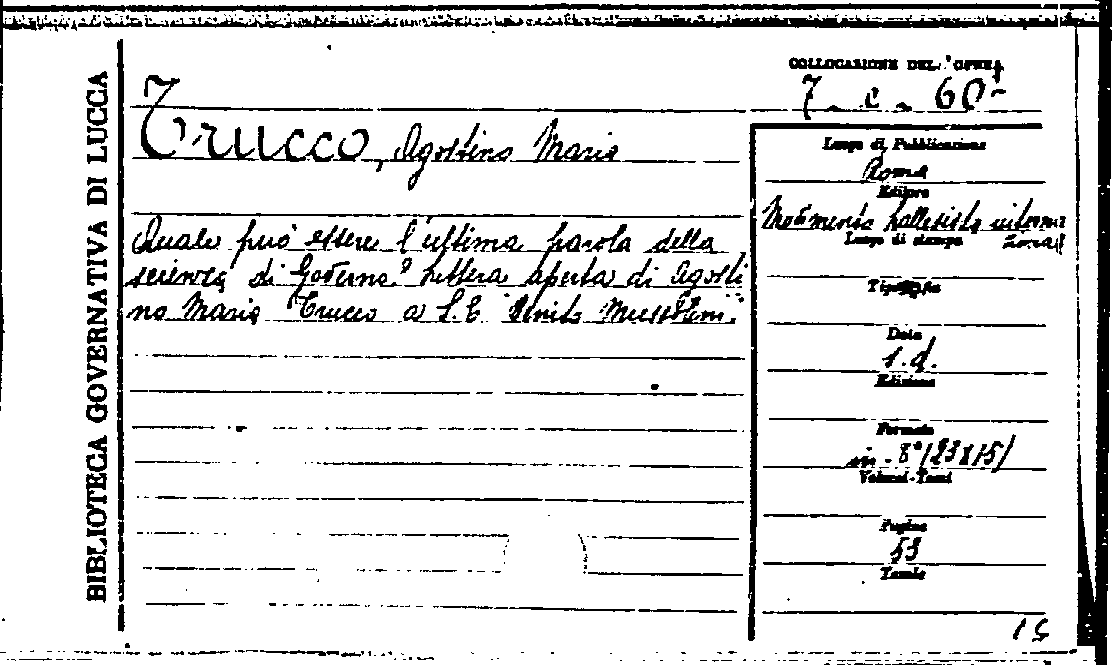 BIBLIOTECA GOVERNATIVA DI LUCCA
COLLOCAZIONE DELL'OPERA
7. c. 60
Trucco, Agostino Maria
Quale può essere l'ultima parola della
scienza di Governo? Lettera aperta di Agosti
no Maria Trucco a S.E. Benito Mussolini.
Luogo di Pubblicazione
Roma
Editore
Movimento pallesista interna
zional
Luogo di stampa
Tipografia
Data
s.d.
Edizione
Formato
in-8° (23x15)
Volumi-Tomi
Pagine
53
Tavole
15